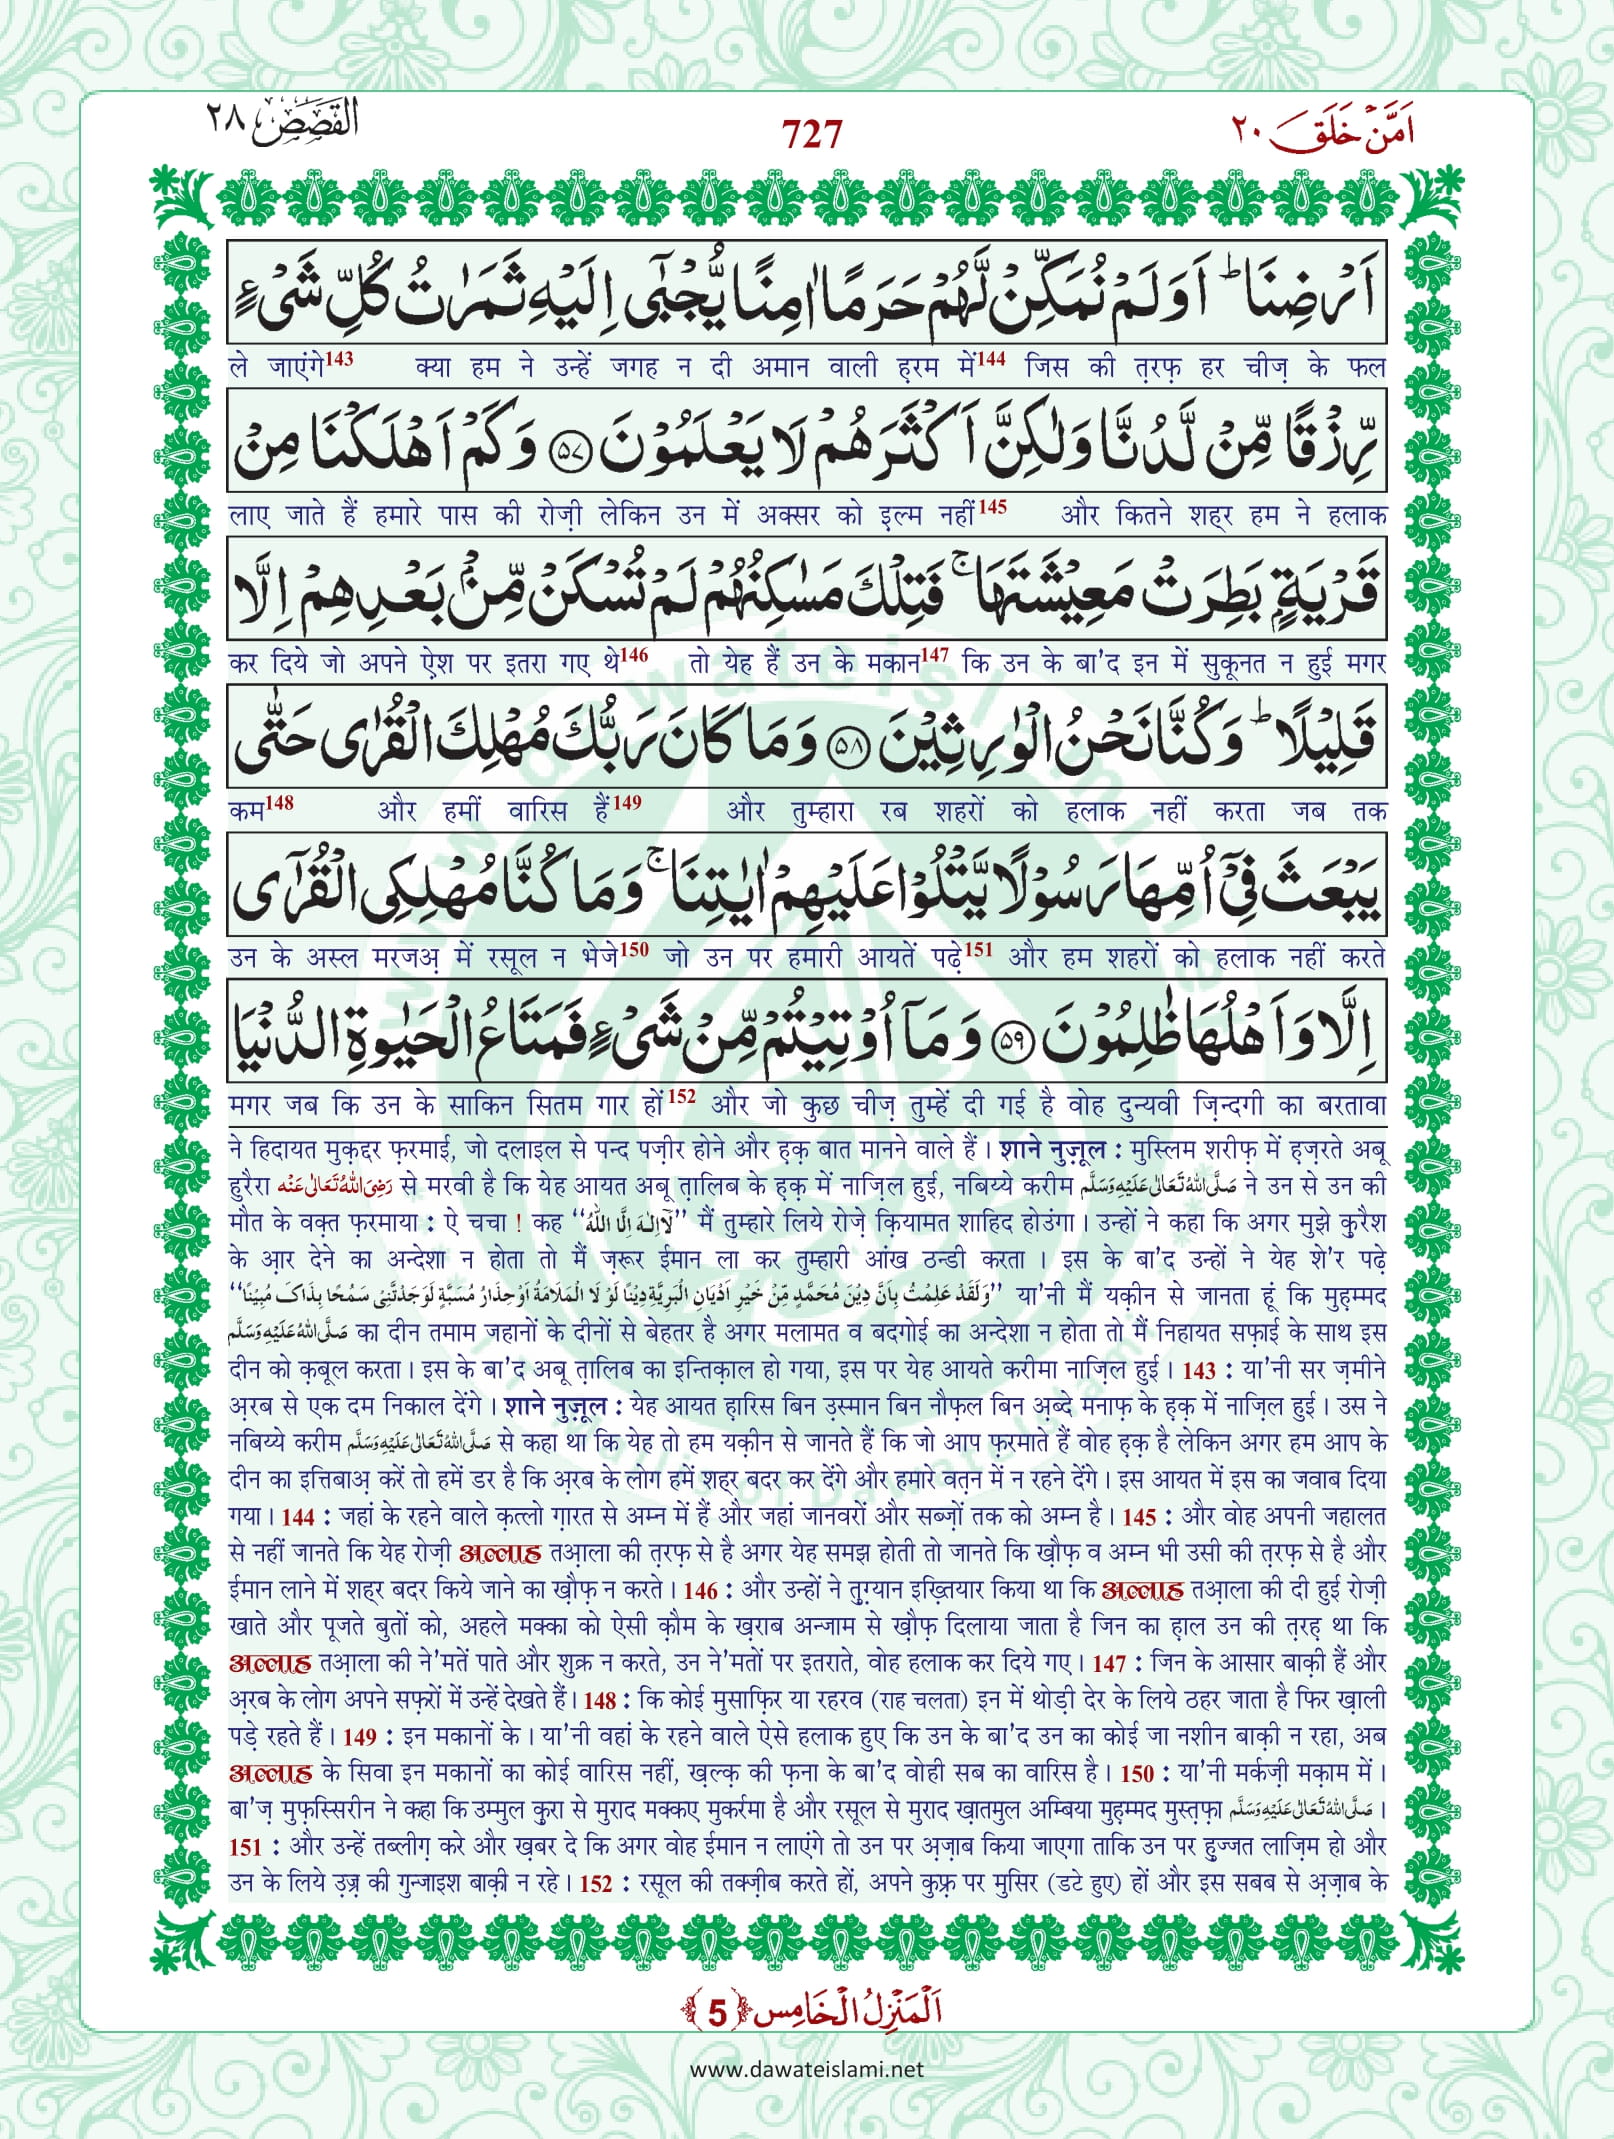 اَمَّنْ خَلَقَ ٢٠
727
القَصَص ٢٨
اَرْضِنَا ؕ اَوَلَمْ نُمَكِّنْ لَّهُمْ حَرَمًا اٰمِنًا یُّجْبٰۤى اِلَیْهِ ثَمَرٰتُ كُلِّ شَیْءٍ
ले जाएंगे143 क्या हम ने उन्हें जगह न दी अमान वाली ह़रम में144 जिस की त़रफ़ हर चीज़ के फल
رِّزْقًا مِّنْ لَّدُنَّا وَلٰكِنَّ اَكْثَرَهُمْ لَا یَعْلَمُوْنَ ﴿۵۷﴾ وَكَمْ اَهْلَكْنَا مِنْ
लाए जाते हैं हमारे पास की रोज़ी लेकिन उन में अक्सर को इल्म नहीं145 और कितने शह्र हम ने हलाक
قَرْیَةٍۭ بَطِرَتْ مَعِیْشَتَهَا ۚ فَتِلْكَ مَسٰكِنُهُمْ لَمْ تُسْكَنْ مِّنْۢ بَعْدِهِمْ اِلَّا
कर दिये जो अपने ऐश पर इतरा गए थे146 तो येह हैं उन के मकान147 कि उन के बा'द इन में सुकूनत न हुई मगर
قَلِیْلًا ؕ وَكُنَّا نَحْنُ الْوٰرِثِیْنَ ﴿۵۸﴾ وَمَا كَانَ رَبُّكَ مُهْلِكَ الْقُرٰى حَتّٰى
कम148 और हमीं वारिस हैं149 और तुम्हारा रब शहरों को हलाक नहीं करता जब तक
یَبْعَثَ فِیْۤ اُمِّهَا رَسُوْلًا یَّتْلُوْا عَلَیْهِمْ اٰیٰتِنَا ۚ وَمَا كُنَّا مُهْلِكِی الْقُرٰۤى
उन के अस्ल मरजअ़ में रसूल न भेजे150 जो उन पर हमारी आयतें पढ़े151 और हम शहरों को हलाक नहीं करते
اِلَّا وَ اَهْلُهَا ظٰلِمُوْنَ ﴿۵۹﴾ وَمَاۤ اُوْتِیْتُمْ مِّنْ شَیْءٍ فَمَتَاعُ الْحَیٰوةِ الدُّنْیَا
मगर जब कि उन के साकिन सितम गार हों152 और जो कुछ चीज़ तुम्हें दी गई है वोह दुन्यवी ज़िन्दगी का बरतावा
ने हिदायत मुक़द्दर फ़रमाई, जो दलाइल से पन्द पज़ीर होने और ह़क़ बात मानने वाले हैं। शाने नुज़ूल : मुस्लिम शरीफ़ में ह़ज़रते अबू
हुरैरा رَضِیَ اللّٰهُ تَعَالٰی عَنْه से मरवी है कि येह आयत अबू त़ालिब के ह़क़ में नाज़िल हुई, नबिय्ये करीम صَلَّی اللّٰهُ تَعَالٰی عَلَیْهِ وَسَلَّم ने उन से उन की
मौत के वक़्त फ़रमाया : ऐ चचा ! कह “لَآ اِلٰـهَ اِلَّا اللّٰهُ” मैं तुम्हारे लिये रोज़े क़ियामत शाहिद होउंगा। उन्हों ने कहा कि अगर मुझे क़ुरैश
के आ़र देने का अन्देशा न होता तो मैं ज़रूर ईमान ला कर तुम्हारी आंख ठन्डी करता । इस के बा'द उन्हों ने येह शे'र पढ़े
“وَلَقَدْ عَلِمْتُ بِاَنَّ دِیْنَ مُحَمَّدٍ مِّنْ خَیْرِ اَدْیَانِ الْبَرِیَّةِ دِیْنًا لَوْ لَا الْمَلَامَةُ اَوْ حِذَارُ مُسَبَّةٍ لَوَجَدْتَّنِیْ سَمُحًا بِذَاکَ مُبِیْنًا” या'नी मैं यक़ीन से जानता हूं कि मुह़म्मद
صَلَّی اللّٰهُ عَلَیْهِ وَسَلَّم का दीन तमाम जहानों के दीनों से बेहतर है अगर मलामत व बदगोई का अन्देशा न होता तो मैं निहायत सफ़ाई के साथ इस
दीन को क़बूल करता। इस के बा'द अबू त़ालिब का इन्तिक़ाल हो गया, इस पर येह आयते करीमा नाज़िल हुई। 143 : या'नी सर ज़मीने
अ़रब से एक दम निकाल देंगे। शाने नुज़ूल : येह आयत ह़ारिस बिन उ़स्मान बिन नौफ़ल बिन अ़ब्दे मनाफ़ के ह़क़ में नाज़िल हुई। उस ने
नबिय्ये करीम صَلَّی اللّٰهُ تَعَالٰی عَلَیْهِ وَسَلَّم से कहा था कि येह तो हम यक़ीन से जानते हैं कि जो आप फ़रमाते हैं वोह ह़क़ है लेकिन अगर हम आप के
दीन का इत्तिबाअ़ करें तो हमें डर है कि अ़रब के लोग हमें शह्र बदर कर देंगे और हमारे वत़न में न रहने देंगे। इस आयत में इस का जवाब दिया
गया। 144 : जहां के रहने वाले क़त्लो ग़ारत से अम्न में हैं और जहां जानवरों और सब्ज़ों तक को अम्न है। 145 : और वोह अपनी जहालत
से नहीं जानते कि येह रोज़ी अल्लाह तआ़ला की त़रफ़ से है अगर येह समझ होती तो जानते कि ख़ौफ़ व अम्न भी उसी की त़रफ़ से है और
ईमान लाने में शह्र बदर किये जाने का ख़ौफ़ न करते। 146 : और उन्हों ने तुग़्यान इख़्तियार किया था कि अल्लाह तआ़ला की दी हुई रोज़ी
खाते और पूजते बुतों को, अहले मक्का को ऐसी क़ौम के ख़राब अन्जाम से ख़ौफ़ दिलाया जाता है जिन का ह़ाल उन की त़रह़ था कि
अल्लाह तआ़ला की ने'मतें पाते और शुक्र न करते, उन ने'मतों पर इतराते, वोह हलाक कर दिये गए। 147 : जिन के आसार बाक़ी हैं और
अ़रब के लोग अपने सफ़रों में उन्हें देखते हैं। 148 : कि कोई मुसाफ़िर या रहरव (राह चलता) इन में थोड़ी देर के लिये ठहर जाता है फिर ख़ाली
पड़े रहते हैं। 149 : इन मकानों के। या'नी वहां के रहने वाले ऐसे हलाक हुए कि उन के बा'द उन का कोई जा नशीन बाक़ी न रहा, अब
अल्लाह के सिवा इन मकानों का कोई वारिस नहीं, ख़ल्क़ की फ़ना के बा'द वोही सब का वारिस है। 150 : या'नी मर्कज़ी मक़ाम में।
बा'ज़ मुफ़स्सिरीन ने कहा कि उम्मुल क़ुरा से मुराद मक्कए मुकर्रमा है और रसूल से मुराद ख़ातमुल अम्बिया मुह़म्मद मुस्त़फ़ा صَلَّی اللّٰهُ تَعَالٰی عَلَیْهِ وَسَلَّم ।
151 : और उन्हें तब्लीग़ करे और ख़बर दे कि अगर वोह ईमान न लाएंगे तो उन पर अ़ज़ाब किया जाएगा ताकि उन पर हुज्जत लाज़िम हो और
उन के लिये उ़ज़्र की गुन्जाइश बाक़ी न रहे। 152 : रसूल की तक्ज़ीब करते हों, अपने कुफ़्र पर मुसिर (डटे हुए) हों और इस सबब से अ़ज़ाब के
اَلْمَنْزِلُ الْخَامِس ﴿5﴾
www.dawateislami.net